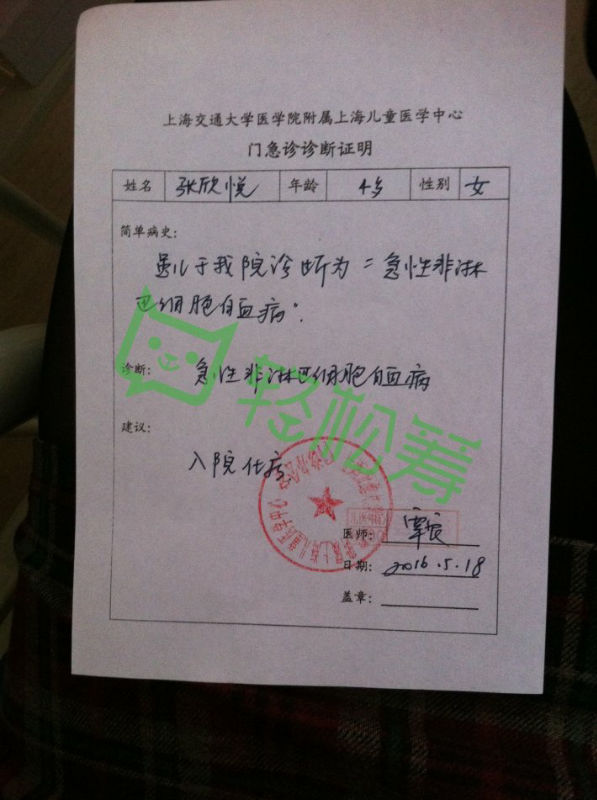 上海交通大学医学院附属上海儿童医学中心
门急诊诊断证明
姓名 张欣悦 年龄 4岁 性别 女
简单病史：
患儿于我院诊断为“急性非淋
巴细胞白血病”.
诊断： 急性非淋巴细胞白血病
轻松筹
建议：
入院化疗
医师：
日期： 2016.5.18
盖章：